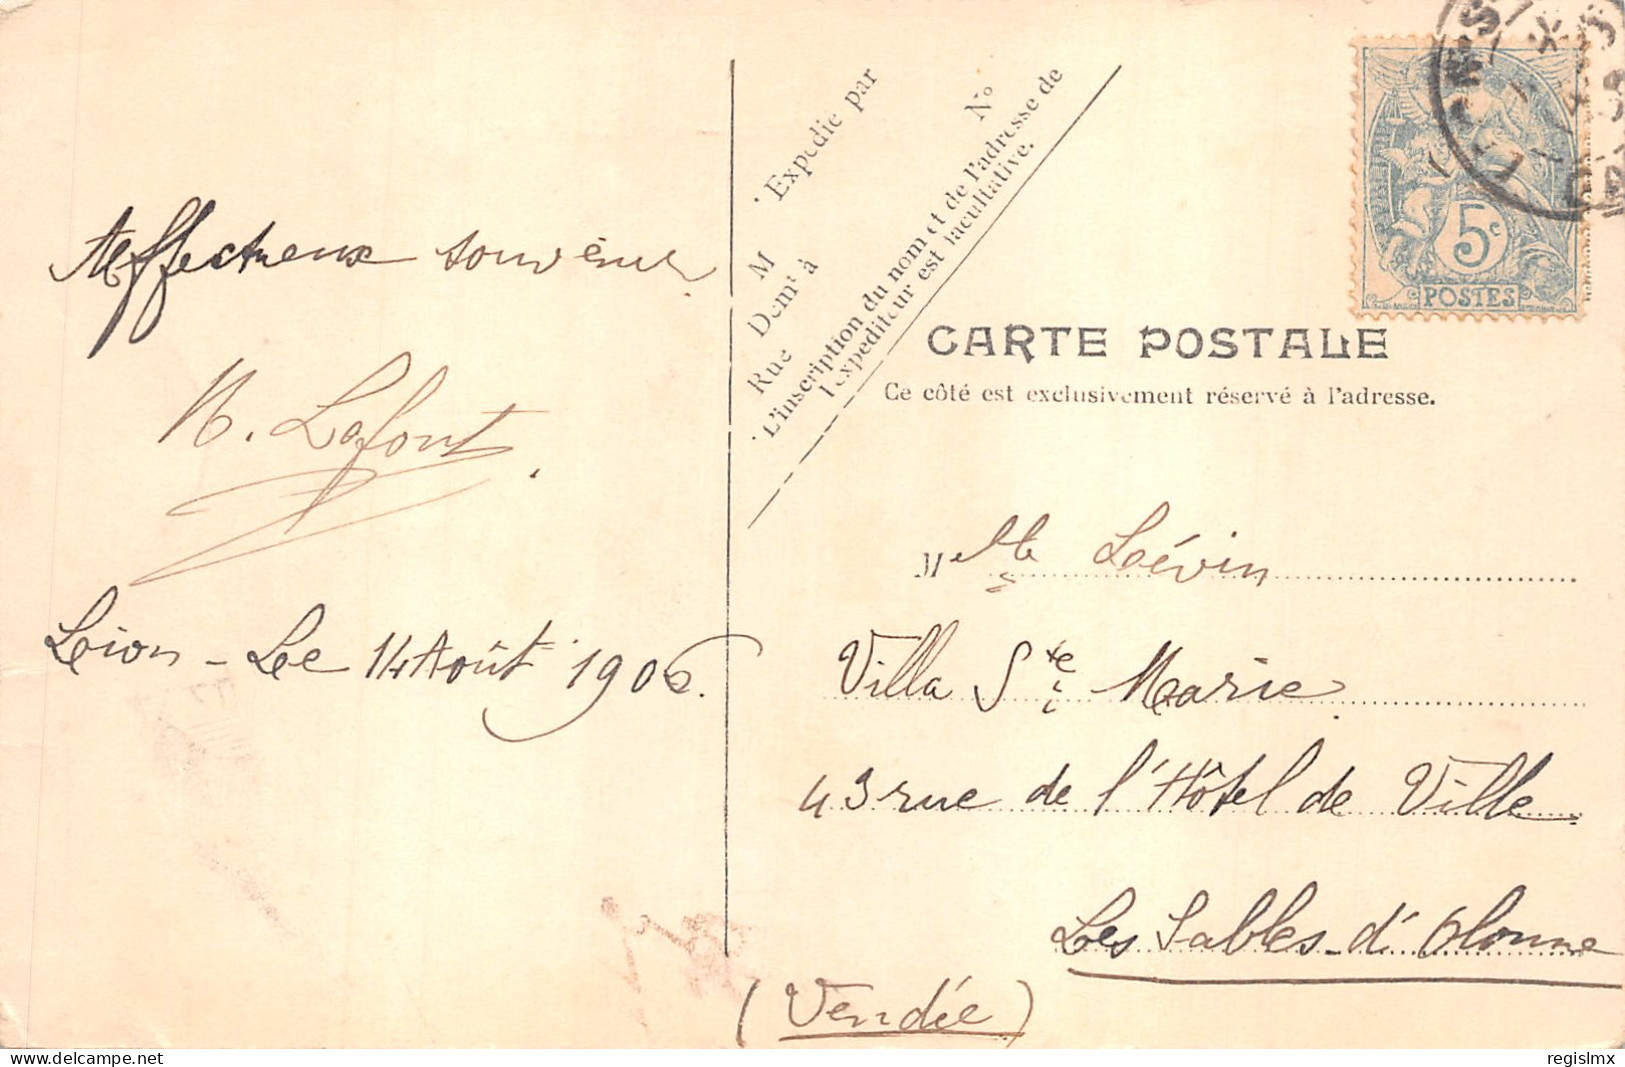 Affectueux souvenir
N. Lafont.
Lion - Le 14 Août 1906.
Expédié par
M
Demt à
Rue
No
L'inscription du nom et de l'adresse de
l'expéditeur est facultative.
5c
POSTES
CARTE POSTALE
Ce côté est exclusivement réservé à l'adresse.
Melle Lévin
Villa Ste Marie
43 rue de l'Hôtel de Ville
Les Sables d'Olonne
(Vendée)
regislmx